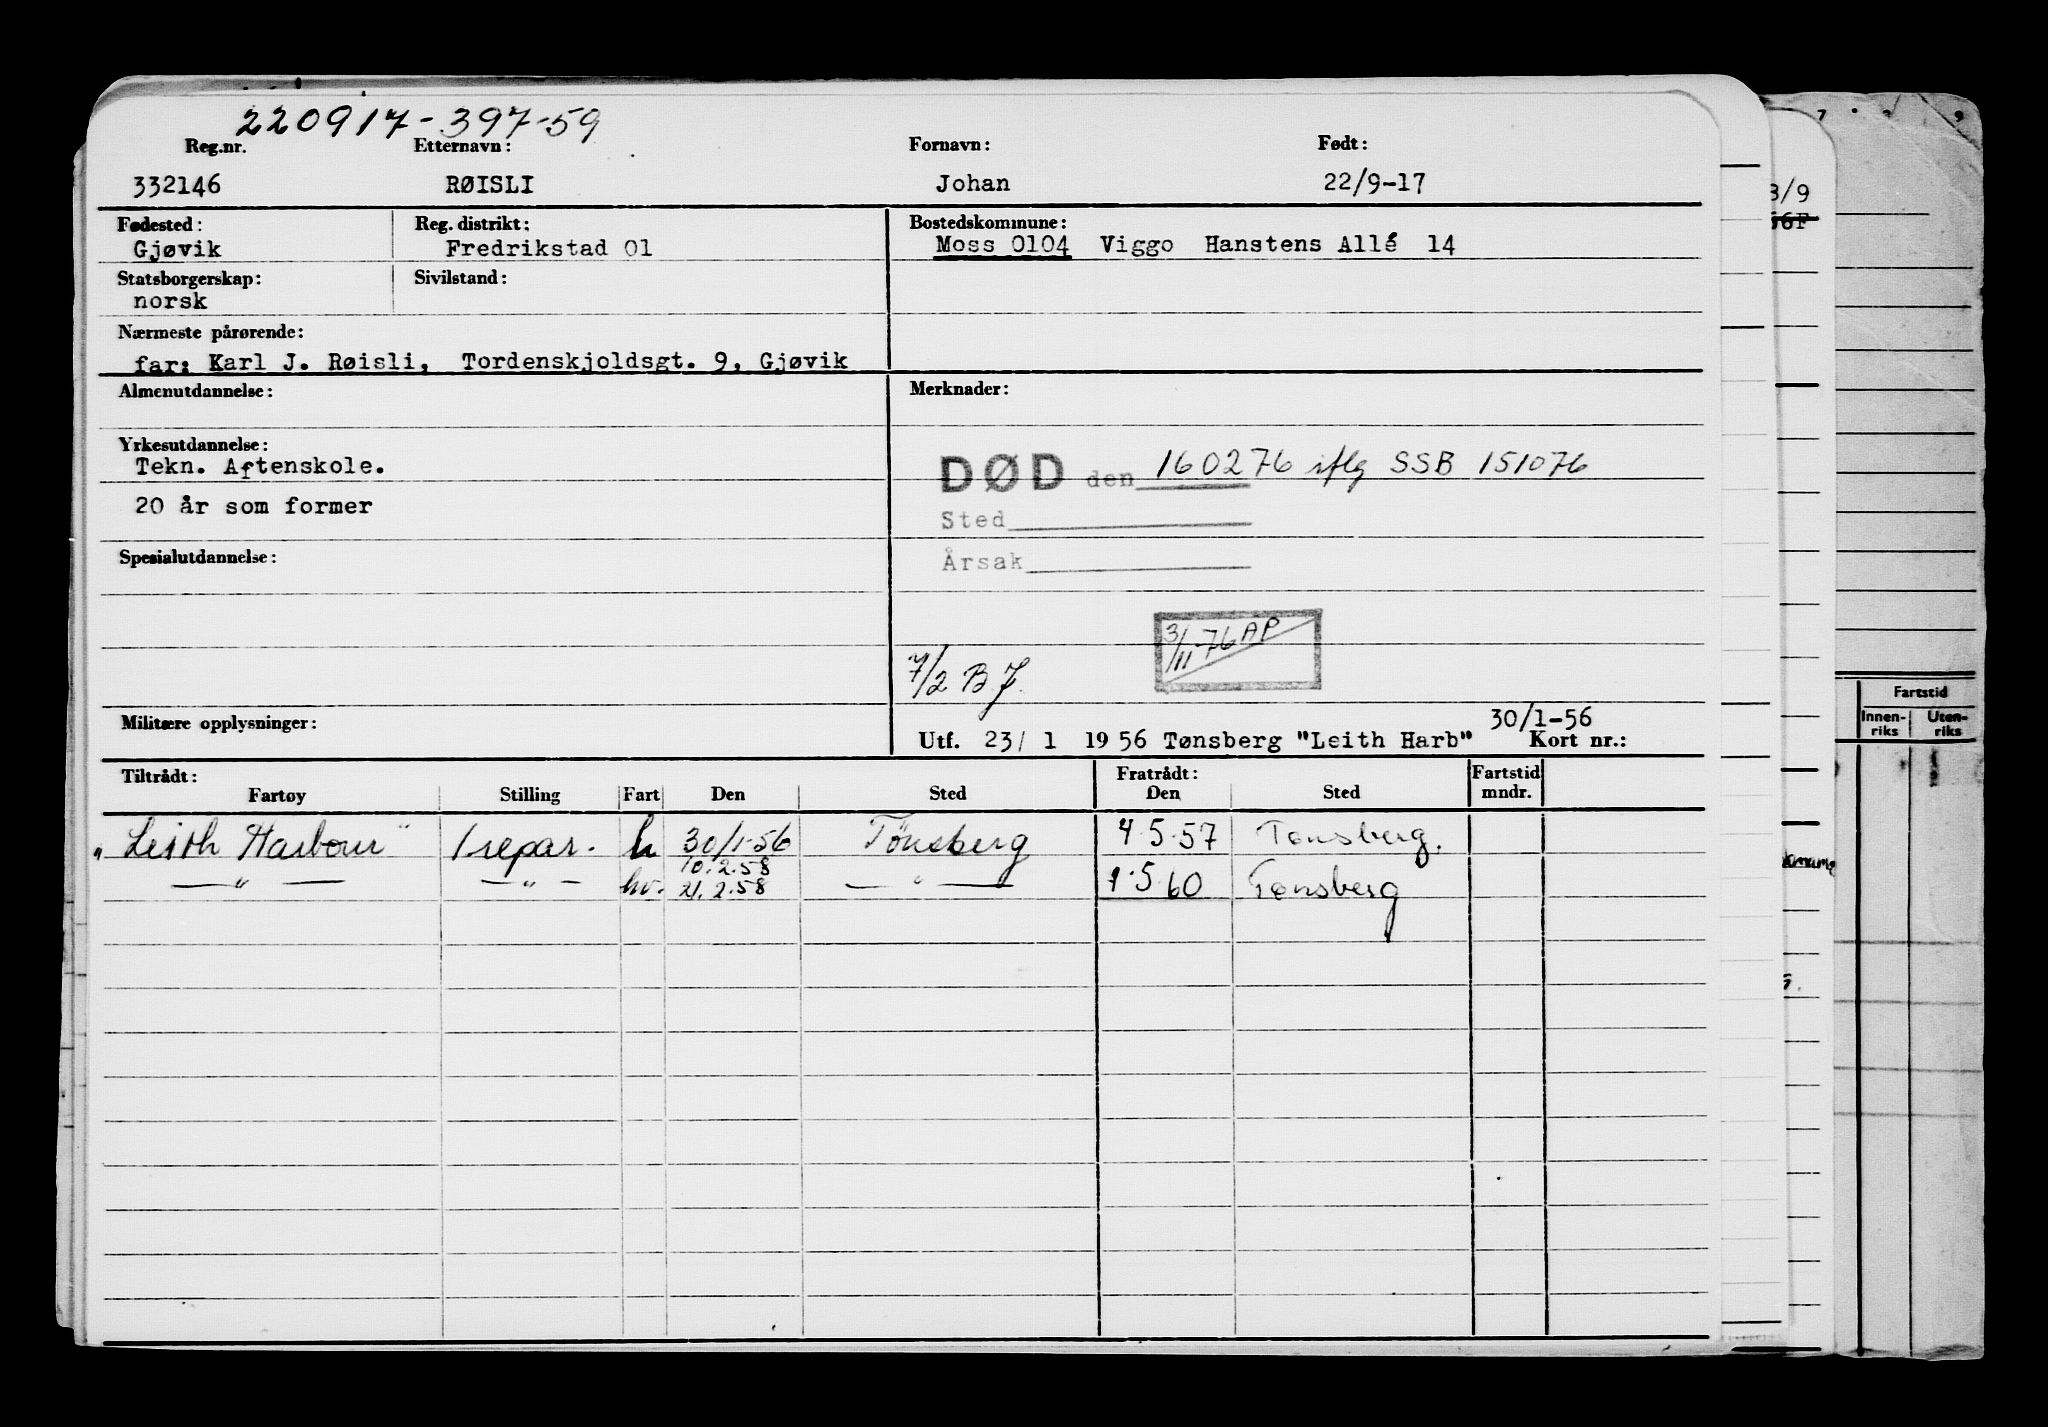 220917-397-59
Reg.nr. Etternavn: Fornavn: Født:
332146 RØISLI Johan 22/9-17
Fødested: Reg. distrikt: Bostedskommune:
Gjøvik Fredrikstad 01 Moss 0104 Viggo Hanstens Allé 14
Statsborgerskap: Sivilstand:
norsk
Nærmeste pårørende:
far: Karl J. Røisli, Tordenskjoldsgt. 9, Gjøvik
Almenutdannelse: Merknader:
Yrkesutdannelse:
Tekn. Aftenskole.
DØD den 160276 iflg SSB 151076
20 år som former
Sted
Spesialutdannelse:
Årsak
3/11-76 AP
7/2 BJ.
Militære opplysninger:
30/1-56
Utf. 23/ 1 19 56 Tønsberg "Leith Harb" Kort nr.:
Tiltrådt: Fratrådt: Fartstid
Fartøy Stilling Fart Den Sted Den Sted mndr.
"Leith Harbour" 1 repar. h 30/1-56 Tönsberg 4.5.57 Tønsberg.
10.2.58
—"— —"— hv. 21.2.58 —"— 1.5.60 Tønsberg
3/9
66F
Fartstid
Innen-riks Uten-riks